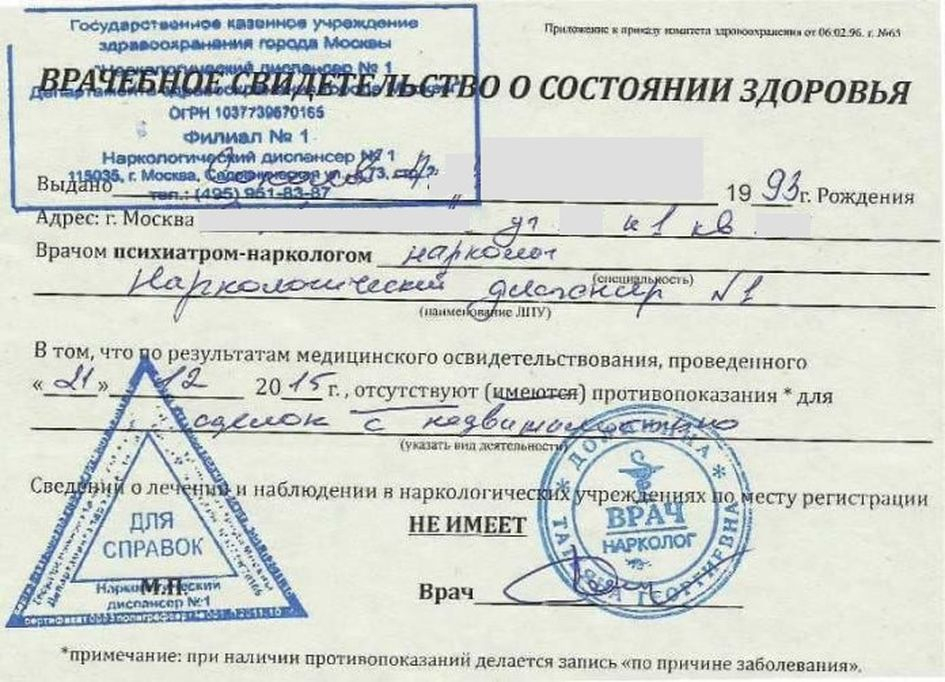 Государственное казенное учреждение
здравоохранения города Москвы
"Наркологический диспансер № 1
Департамента здравоохранения города Москвы"
ОГРН 1037739670165
Филиал № 1
Наркологический диспансер № 1
115035, г. Москва,
тел.: (495) 951-83-87
Приложение к приказу комитета здравоохранения от 06.02.96. г. №65
ВРАЧЕБНОЕ СВИДЕТЕЛЬСТВО О СОСТОЯНИИ ЗДОРОВЬЯ
Выдано 1993 г. Рождения
Адрес: г. Москва к1 кв
Врачом психиатром-наркологом нарколог
(специальность)
Наркологический диспансер №1
(наименование ЛПУ)
В том, что по результатам медицинского освидетельствования, проведенного
«21» 12 2015 г., отсутствуют (имеются) противопоказания * для
сделок с недвижимостью
(указать вид деятельности)
Сведений о лечении и наблюдении в наркологических учреждениях по месту регистрации
НЕ ИМЕЕТ
Врач
М.П.
ДЛЯ
СПРАВОК
Наркологический
диспансер №1
ВРАЧ
НАРКОЛОГ
ГЕОРГИЕВНА
*примечание: при наличии противопоказаний делается запись «по причине заболевания».